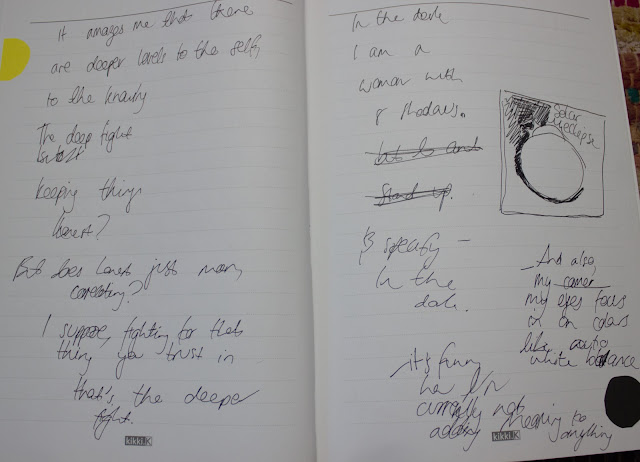 it amazes me that there
are deeper levels to the self,
to the knowing
The deep fight
keeping things
honest?
But does honest just mean
correcting?
I suppose, fighting for that
thing you trust in
that's the deeper
fight.
In the dark
I am a
woman with
8 shadows.
stand up.
Solar
eclipse
To specify –
In the
dark.
And also,
my camer
my eyes focus
in on colours
like auto
white balance
it's funny
how I'm
currently not
adding meaning to
anything